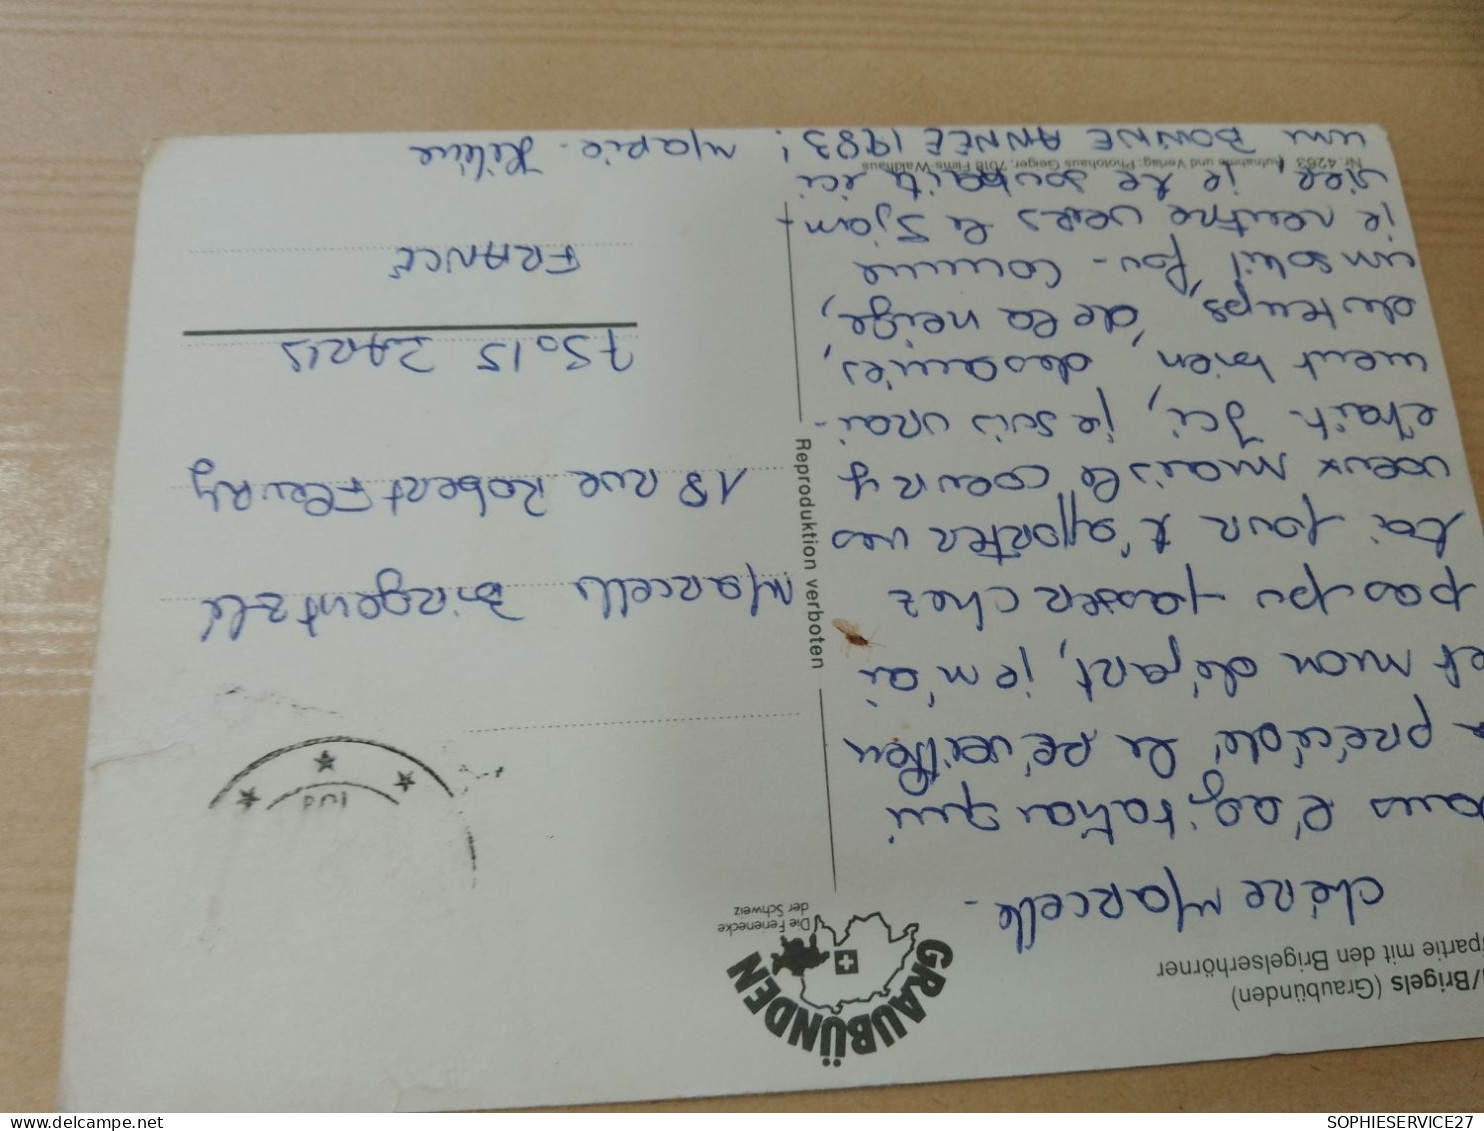 /Brigels (Graubünden)
partie mit den Brigelserhörner
chère Marcelle -
l'agitation qui
a précédé le réveillon
et mon départ, je n'ai
pas pu passer chez
toi pour t'apporter mes
voeux mais le coeur y
était. Ici, je suis vrai-
ment bien, des amies,
du temps, de la neige,
un soleil fou - comme
je rentre vers le 5 jan-
vier, je te souhaite ici
une BONNE ANNEE 1983!
Marie-Hélène
Nr. 4263 Aufnahme und Verlag: Photohaus Geiger, 7018 Flims-Waldhaus
Reproduktion verboten
GRAUBÜNDEN
Die Ferienecke
der Schweiz
Marcelle
18 rue Robert Fleury
75015 PARIS
FRANCE
SOPHIESERVICE27